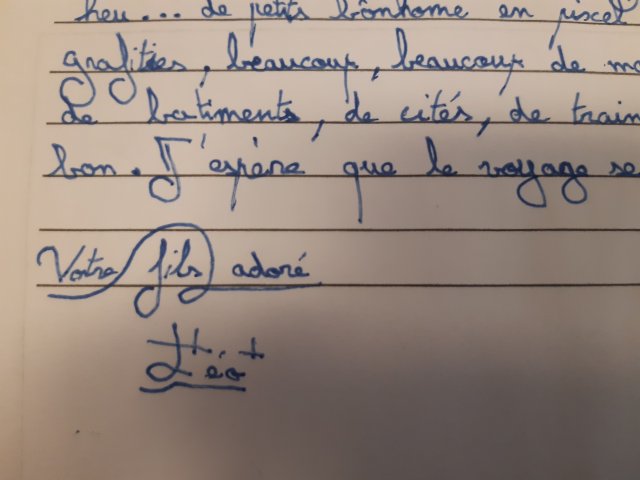 heu... de petits bônhome en piscel
grafities, béaucoup, beaucoup de
de batiments, de cités, de train
bon. J'espère que le voyage se
Votre fils adoré
Léo